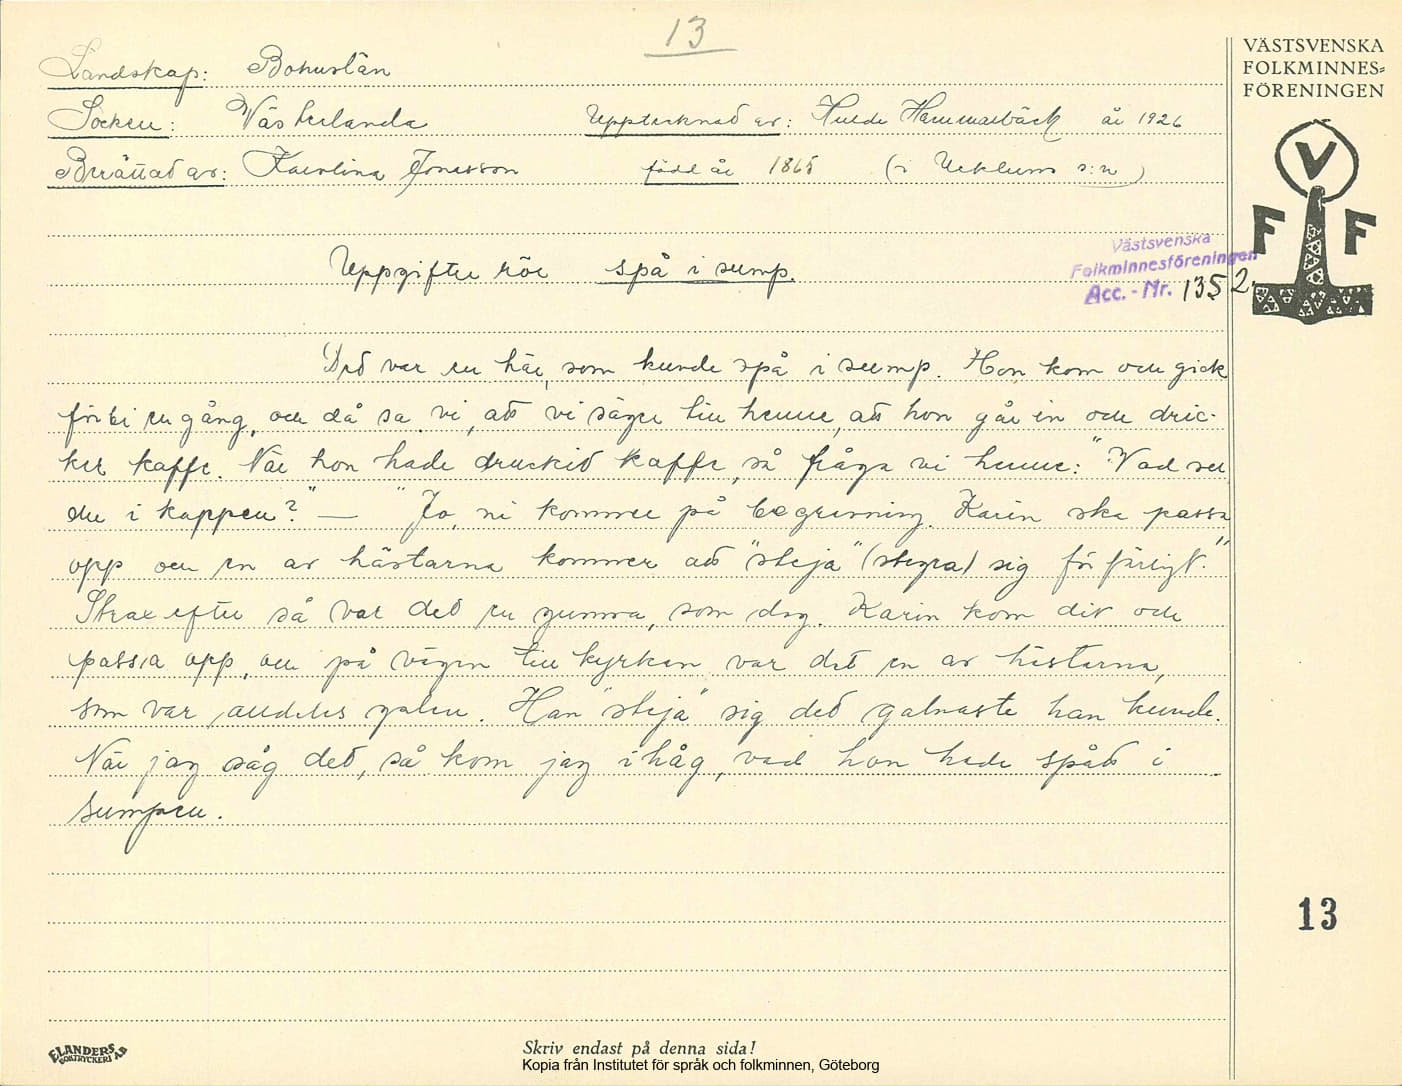 13
VÄSTSVENSKA
FOLKMINNES=
FÖRENINGEN
Landskap: Bohuslän
Socken: Västerlanda Upptecknad av: Hulda Hammarbäck år 1926
Berättad av: Karolina Jonasson född år 1865 (i Ucklums s:n)
V
F F
Västsvenska
Folkminnesföreningen
Acc. - Nr. 1352.
Uppgifter rör spå i sump.
Det var en här, som kunde spå i sump. Hon kom och gick
förbi en gång, och då sa vi, att vi säger till henne, att hon går in och dric-
ker kaffe. När hon hade druckit kaffe, så fråga vi henne: "Vad ser
du i koppen?" — "Jo, ni kommer på begravning. Karin ska passa
opp och en av hästarna kommer att "steja" (stegra) sig förfärligt."
Strax efter så var det en gumma, som dog. Karin kom dit och
passa opp, och på vägen till kyrkan var det en av hästarna,
som var alldeles galen. Han "steja" sig det galnaste han kunde.
När jag såg det, så kom jag ihåg, vad hon hade spått i
sumpen.
13
ELANDERS
BOKTRYCKERI AB
Skriv endast på denna sida!
Kopia från Institutet för språk och folkminnen, Göteborg